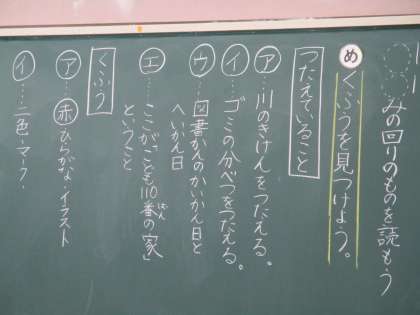 みの回りのものを読もう
め くふうを見つけよう。
つたえていること
ア…川のきけんをつたえる。
イ…ゴミの分べつをつたえる。
ウ…図書かんのかいかん日と
へいかん日
エ…ここが「こども110番の家」
ばん
ということ
くふう
ア…赤 ひらがな・イラスト
イ…二色・マーク・